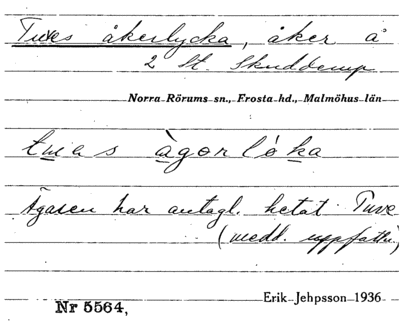 Tuves åkerlycka, åker å
2 St. Skuddarp
Norra Rörums sn., Frosta hd., Malmöhus län
àgor
Ägaren har antagl. hetat Tuve
(medd. uppfattn.)
Erik Jehpsson 1936
Nr 5564,